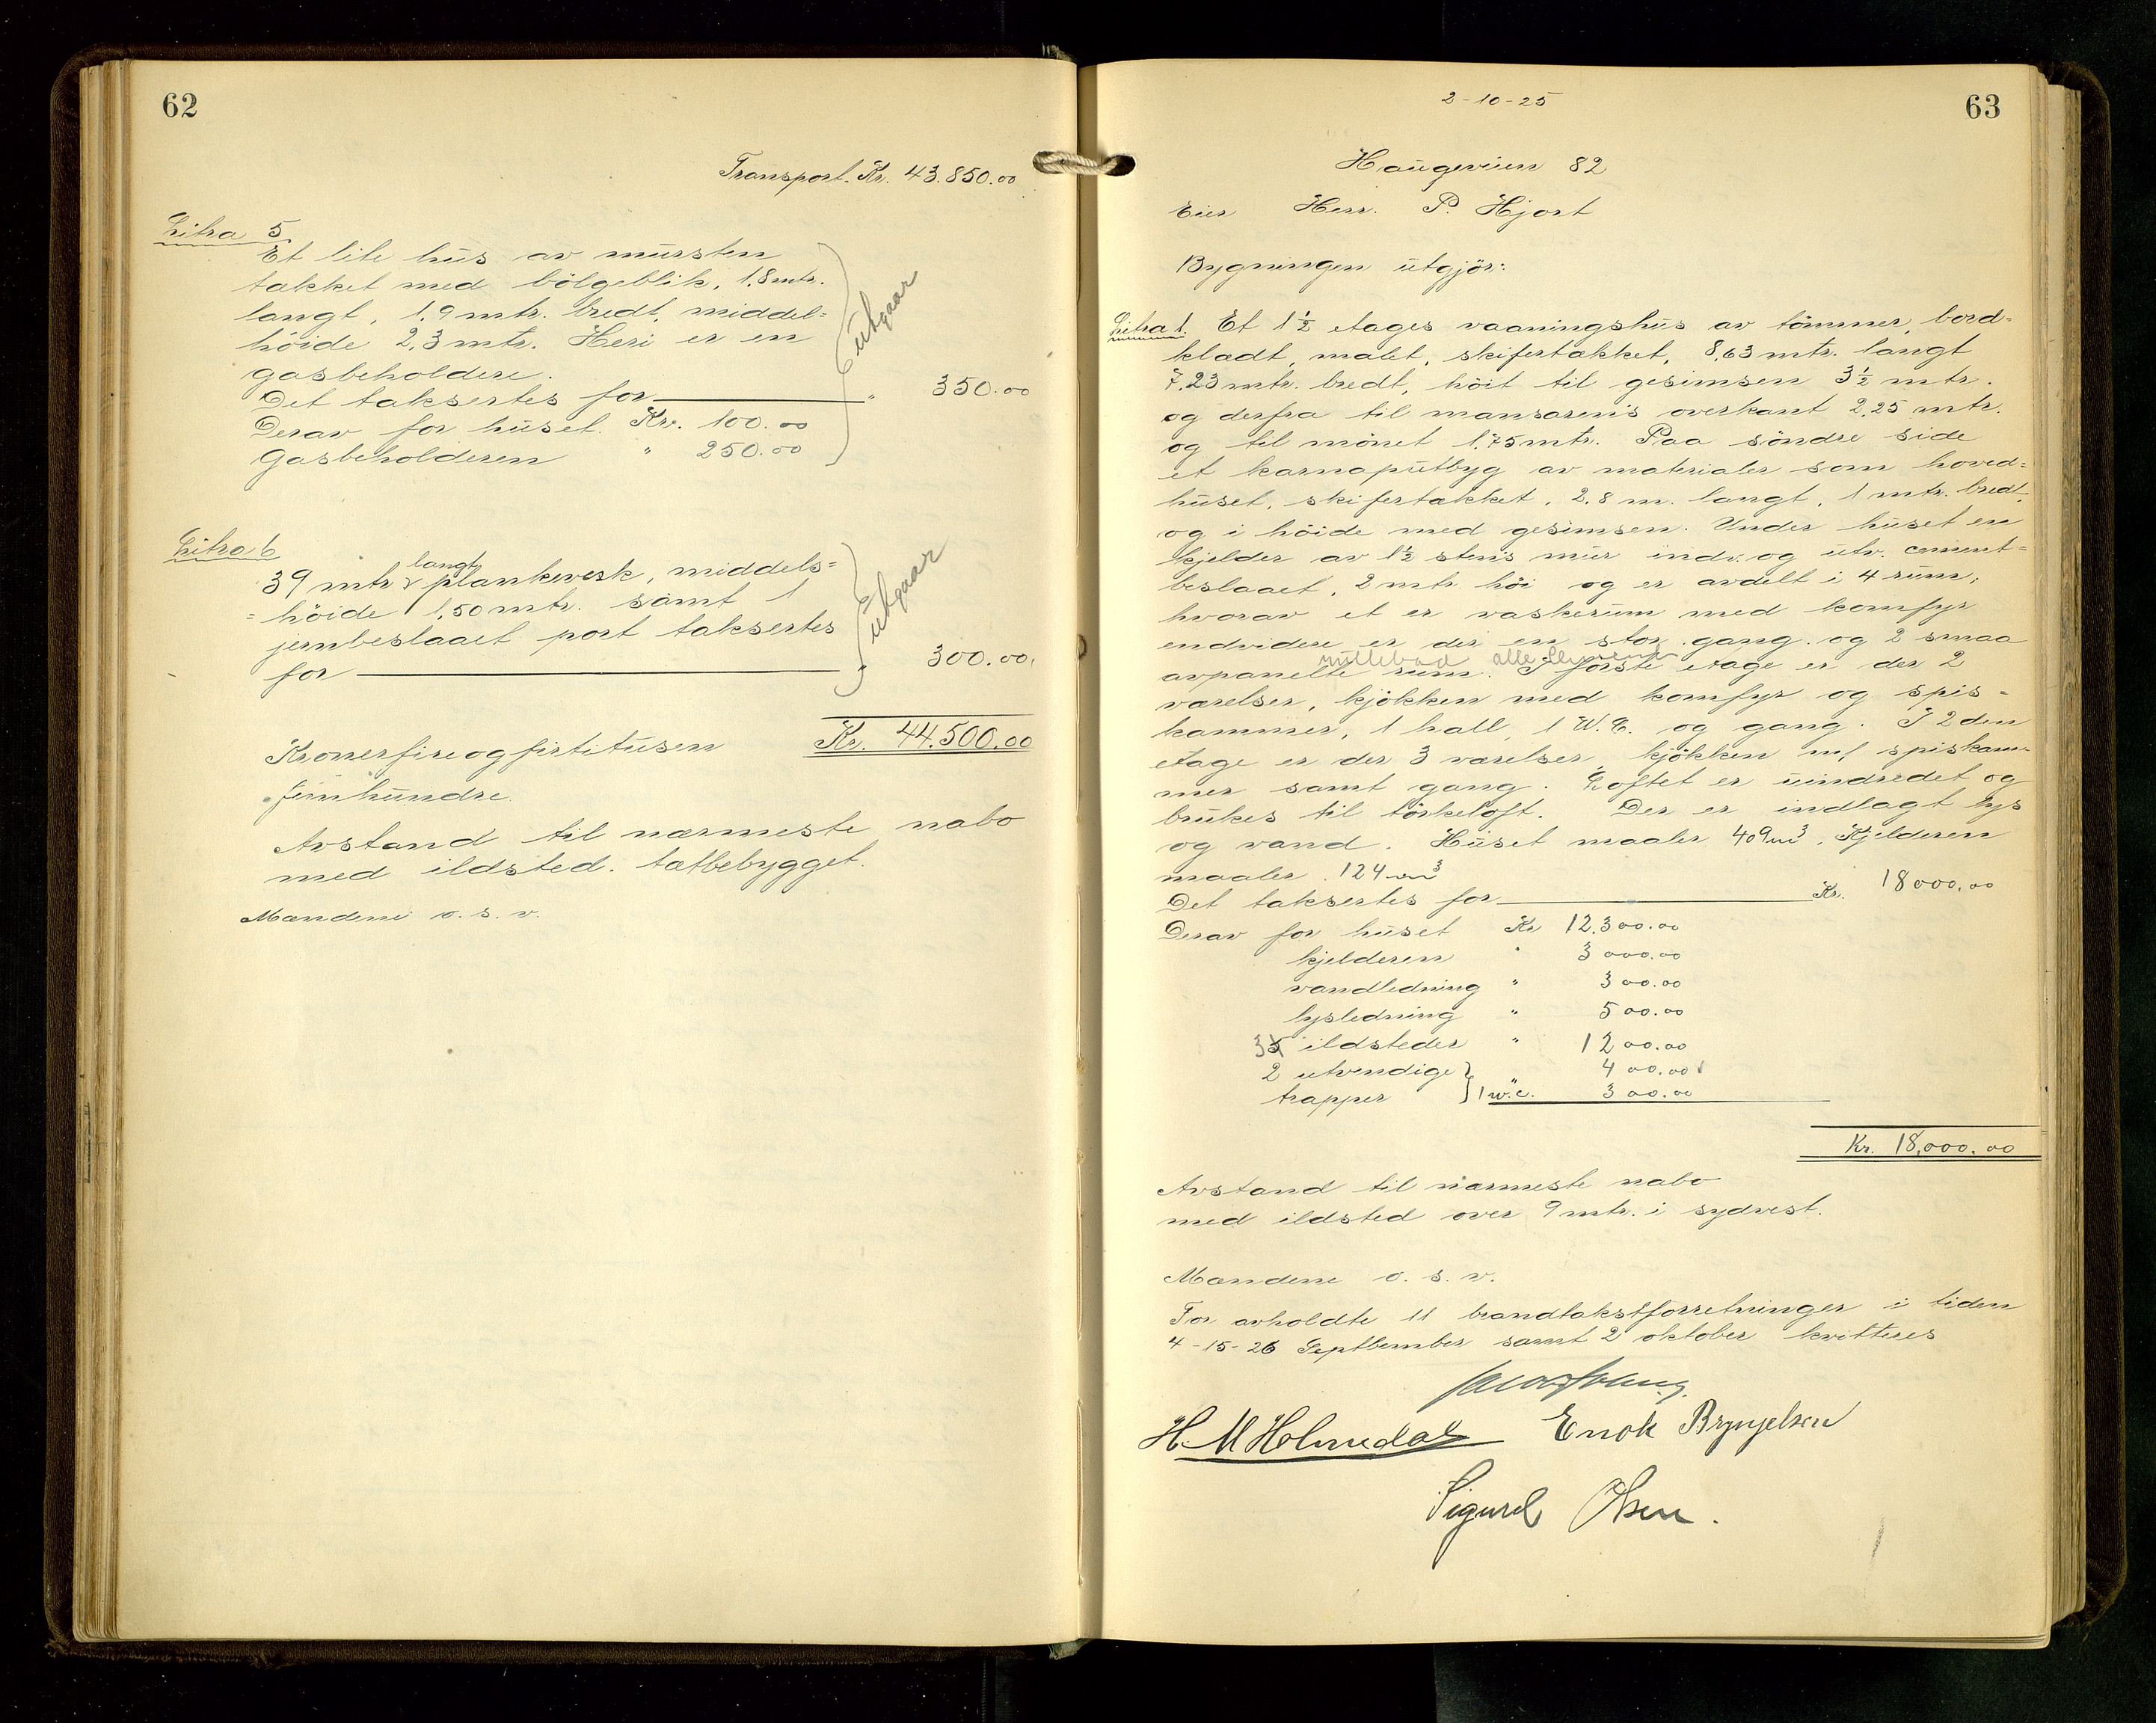 62
Transport. Kr. 43.850.00
Litra 5
Et lite hus av mursten
takket med bölgeblik, 1.8 mtr.
langt, 1.9 mtr. bredt, middel=
höide 2,3 mtr. Heri er en
gasbeholdere.
Det taksertes for " 350.00
Derav for huset. Kr. 100.00
Gasbeholderen " 250.00
utgaar
Litra 6
39 mtr langt plankeverk, middels=
=höide 1,50 mtr. samt 1
jernbeslaaet port taksertes
for " 300.00.
utgaar
Kr. 44.500.00
Kronerfireogfirtitusen
femhundre.
Avstand til nærmeste nabo
med ildsted. tætbebygget.
Mændene o. s. v.
63
2-10-25
Haugeveien 82
Eier Herr. P. Hjort
Bygningen utgjör:
Litra 1. Et 1½ etages vaaningshus av tömmer, bord=
kladt, malet, skifertakket, 8,63 mtr. langt
7,23 mtr. bredt, höit til gesimsen 3½ mtr.
og derfra til mansarens overkant 2,25 mtr.
og til mönet 1,75 mtr. Paa söndre side
et karnaputbyg av materialer som hoved=
huset, skifertakket, 2,8 m. langt, 1 mtr. bredt,
og i höide med gesimsen. Under huset en
kjelder av 1½ stens mur indv. og utv. cement=
beslaaet, 2 mtr. höi og er avdelt i 4 rum;
hvorav et er vaskerum med komfyr
endvidere er der en stor gang og 2 smaa
avpanelte rum. I förste etage er der 2
værelser, kjökken med komfyr og spis=
kammer, 1 hall, 1 W.C. og gang. I 2den
etage er der 3 værelser, kjökken m/ spiskam-
mer samt gang. Loftet er uindredet og
brukes til törkeloft. Der er indlagt lys
og vand. Huset maaler 409 m³. Kjelderen
maaler 124 m³
Det taksertes for Kr. 18000.00
Derav for huset Kr 12.300.00
kjelderen " 3000.00
vandledning " 300.00
lysledning " 500.00
3 5 ildsteder " 1200.00
2 utvendige } " 400.00
trapper } 1 w.c. 300.00
Kr. 18,000.00
Avstand til nærmeste nabo
med ildsted over 9 mtr. i sydvest.
Mændene o. s. v.
For avholdte 11 brandtakstforretninger i tiden
4-15-26 Septbember samt 2 oktober kvitteres
H. M Holmedal Enok Brynjelsen
Sigurd Olsen.